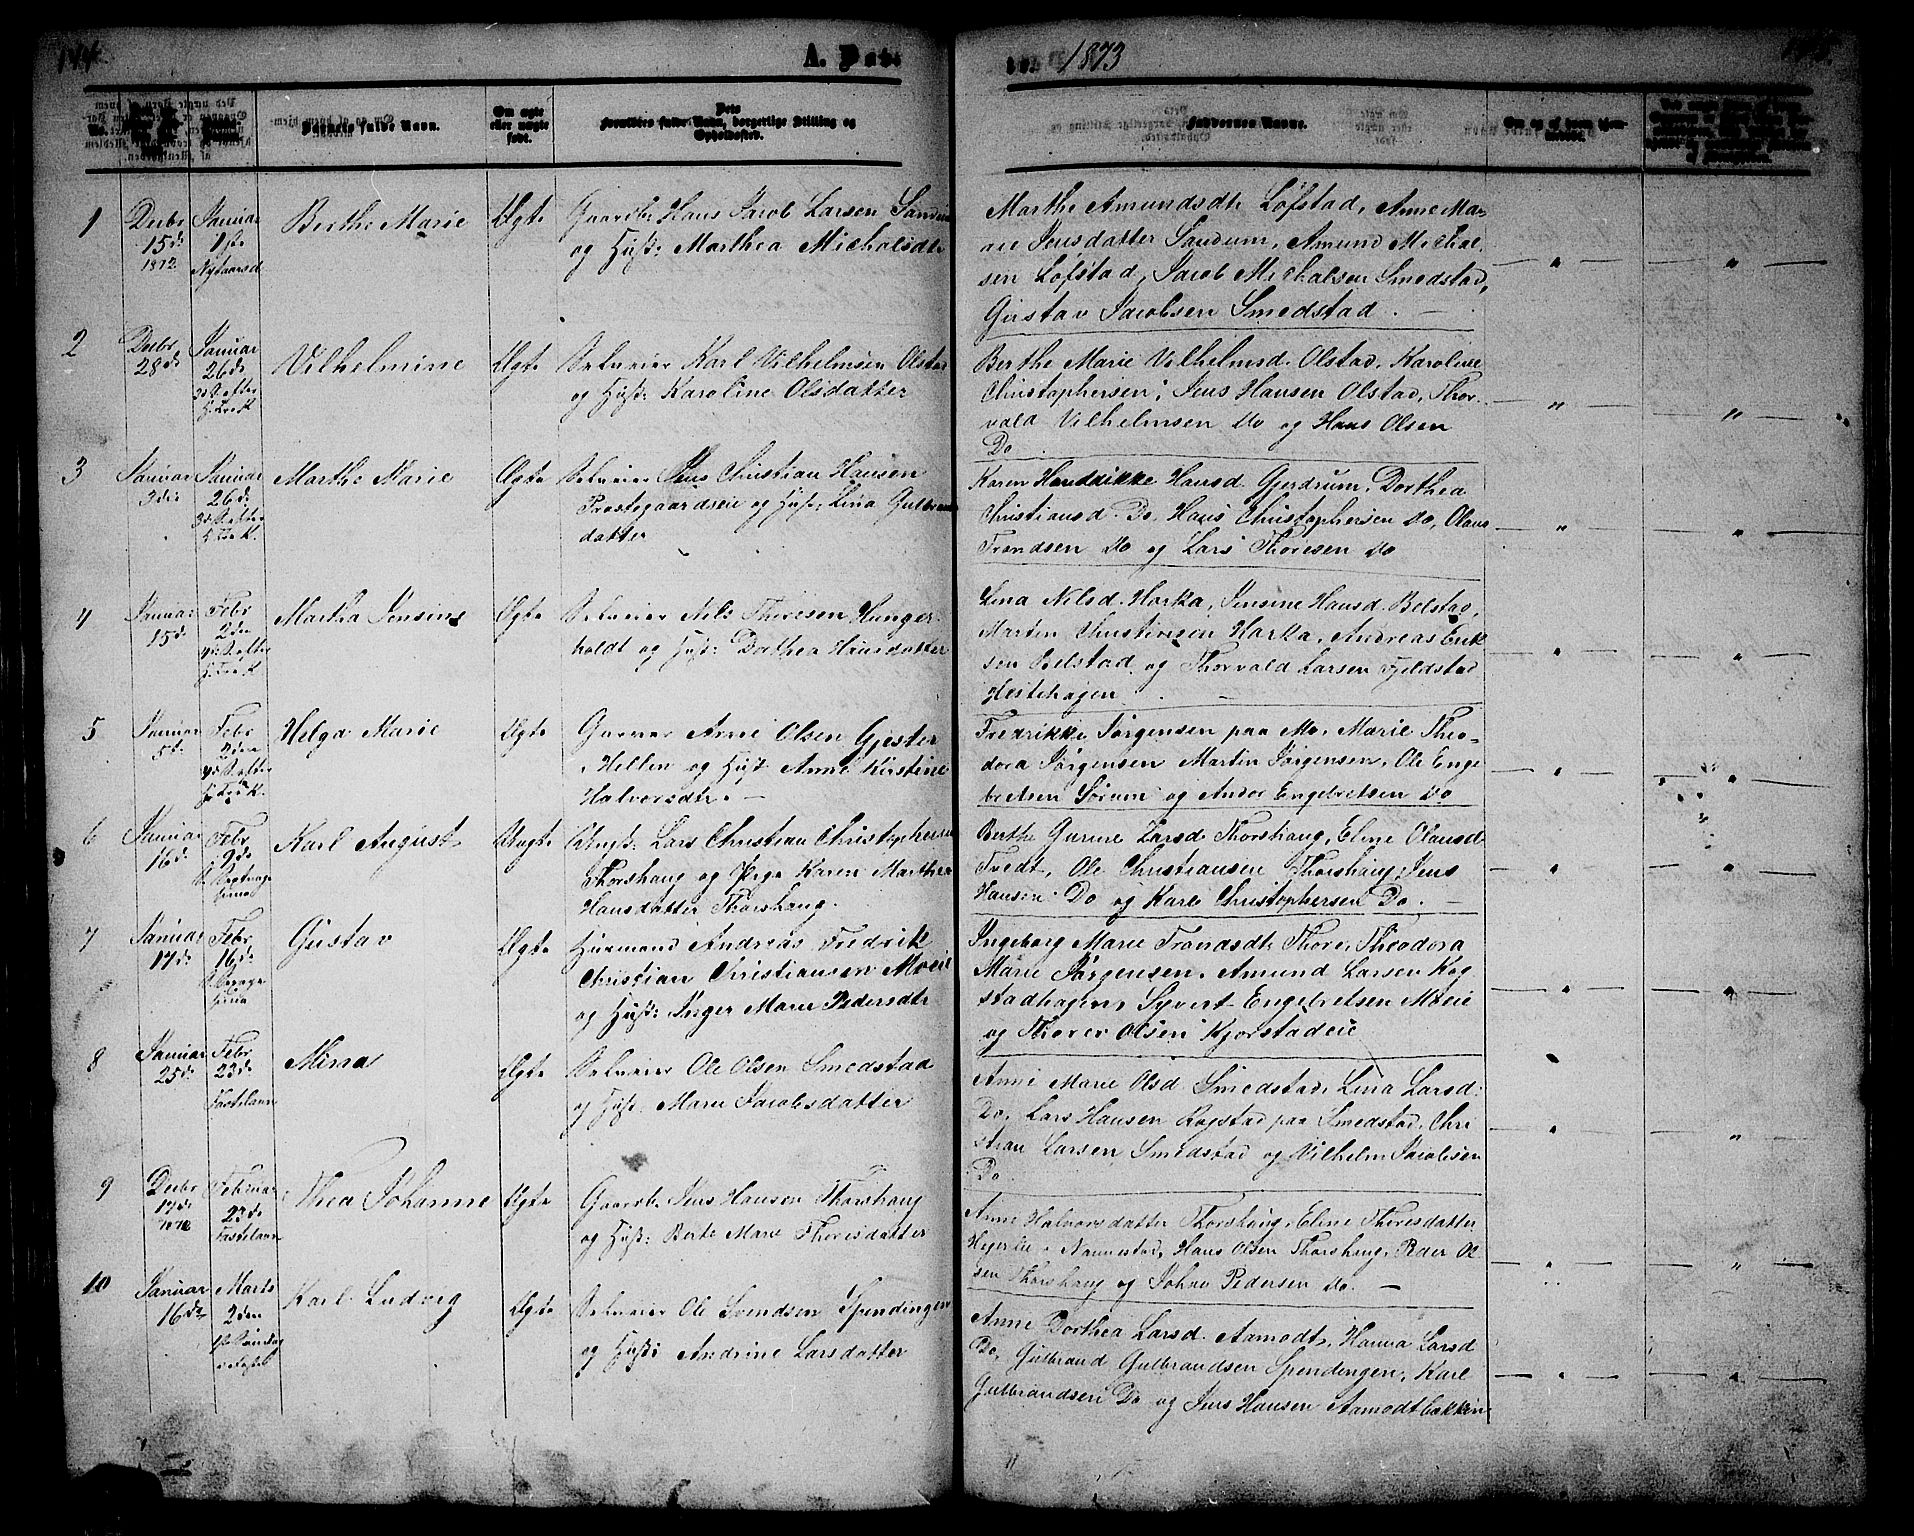 144
A. Døbte 1873
Barnets fulde Navn.
Om ægte eller uægte født.
Dets Forældres fulde Navn, borgerlige Stilling og Opholdssted.
Faddernes Navne.
1
Decbr 15de 1872
Januar 1ste Nytaarsd
Berthe Marie
Ægte
Gaardbr Hans Jacob Larsen
og Hust: Marthea Michalsdtr
Marthe Amundsdtr Løfstad, Anne Ma-
rie Jensdatter Sandum, Amund Michal-
sen Løfstad, Jacob Michalsen Smedstad,
Gustav Jacobsen Smedstad.
2
Decbr 28de
Januar 26de 3die S. efter H. Tre K
Vilhelmine
Ægte
Selveier Karl Vilhelmsen Olstad
og Hust: Karoline Olsdatter
Berthe Marie Vilhelmsd. Olstad, Karoline
Christophersen, Jens Hansen Olstad, Thor-
vald Vilhelmsen Do og Hans Olsen
Do
3
Januar 3die
Januar 26de 3die S. efter H. Tre K.
Marthe Marie
Ægte
Selveier Jens Christian Hansen
Præstegaardseie og Hust: Lina Gulbrands
datter
Karen Hendrikke Hansd Gjerdrum, Dorthea
Christiansd. Do, Hans Christophersen Do, Olaus
Trondsen Do og Lars Thoresen Do
4
Januar 15de
Febr 2den 4de S. efter H. Tre K
Martha Jensine
Ægte
Selveier Nils Thoresen Hunger-
holdt og Hust: Dorthea Hansdatter
Lina Nilsd. Harka, Jensine Hansd. Belstad,
Martin Christensen Harka, Andreas Erik
sen Belstad og Thorvald Larsen Fjeldstad
Hestehagen
5
Januar 5te
Febr 2den 4de S. efter H. Tre K.
Helga Marie
Ægte
Garver Arne Olsen Gjester
Hellen og Hust Anne Kirstine
Halvorsdtr.
Fredrikke Jørgensen paa Mo, Marie Theo-
dora Jørgensen Martin Jørgensen, Ole Enge
bretsen Sørum og Andor Engebretsen Do
6
Januar 16de
Febr 9de S. Septuage sima
Karl August
Uægte
Ungk: Lars Christian Christophersen
Thorshaug og Pige Karen Marthea
Hansdatter Thorshaug.
Berthe Gurine Larsd Thorshaug, Eline Olausd
Tvedt, Ole Christiansen Thorshaug, Jens
Hansen Do og Karl Christophersen Do.
7
Januar 17de
Febr 16de
Gustav
Ægte
Husmand Andreas Fredrik
Christian Christiansen Moeie
og Hust: Inger Marie Pedersdtr
Ingeborg Marie Trondsdtr, Theodora
Marie Jørgensen, Amund Larsen Rog
stadhagen, Syvert Engebretsen Moeie
og Thorer Olsen Kjorstadeie
8
Januar 25de
Febr 23de Fastelavn
Mina
Ægte
Selveier Ole Olsen Smedstad
og Hust: Marie Jacobsdatter
Anne Marie Olsd Smedstad, Lina Larsd.
Do, Lars Hansen Rogstad paa Smedstad, Chri
stian Larsen Smedstad og Vilhelm Jacobsen
Do.
9
Decbr 17de 1872
Februar 23de Fastelavn
Thea Johanne
Ægte
Gaardbr Jens Hansen Thorshaug
og Hust: Berte Marie Thorisdatter
Anne Halvorsdatter Thorshaug, Eline Thoresdatter
Nannestad, Hans Olsen Thorshaug, Peder Ol
sen Thorshaug og Johan Pedersen Do.
10
Januar 16de
Marts 2den 1ste Søndag i Faste
Karl Ludvig
Ægte
Selveier Ole Svendsen Spendingen
og Hust: Andrine Larsdatter
Anne Dorthea Larsd. Aamodt, Hanna Larsd
Do, Gulbrand Gulbrandsen Spendingen, Karl
Gulbrandsen Do og Jens Hansen Aamodtbakken